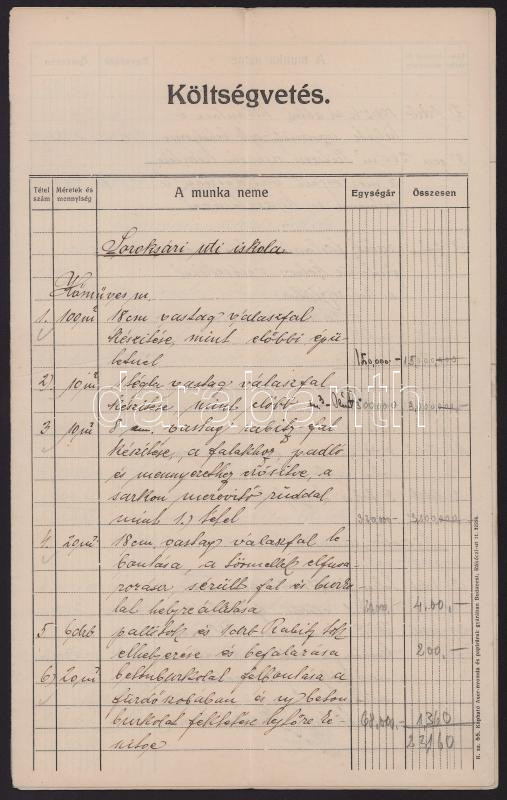 Költségvetés.
Tétel szám
Méretek és mennyiség
A munka neme
Egységár
Összesen
Soroksári uti iskola
Kőműves m.
1. 100 m² 18 cm vastag válaszfal
készitése, mint előbbi épü-
letnél 150,000.-
2). 10 m² tégla vastag válaszfal
készitése, mint előbb
3 10 m² 8 cm vastag rabitz fal
készitése, a falakhoz, padló
és mennyezethez erősitve, a
sarkon merevitő rúddal
mint 1.) tétel
4. 20 m² 18 cm vastag válaszfal le-
bontása, a törmelék elfuva-
rozása sérült fal és burko-
lat helyreállitása 4.00.-
5 6 drb palitok és 1 drb Rabitz tok
elhelyezése és befalazása 200.-
6) 20 m² betonburkolat felbontása a
fürdőszobában és uj beton
burkolat fektetése lejtőre ké- 68.000.- 1360
szitve 23160
darabanth